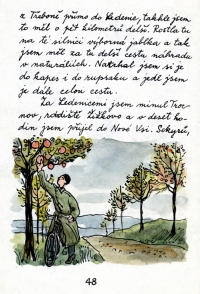 z Třeboně přímo do Ledenic, takhle jsem
to měl o pět kilometrů delší. Rostla tu
na té silnici výborná jablka a tak
jsem měl za tu delší cestu náhradu
v naturáliích. Natrhal jsem si je
do kapes i do rupsaku a jedl jsem
je dále celou cestu.
Za Ledenicemi jsem minul Troc-
nov, rodiště Žižkovo a v deset ho-
din jsem přijel do Nové Vsi.
48